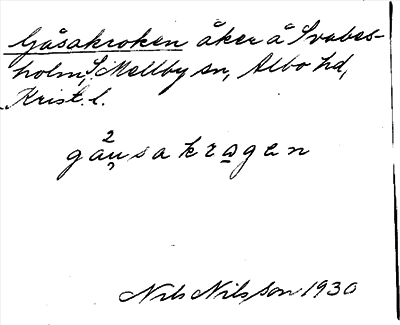 Gåsakroken åker å Svabes-
holm, S. Mellby sn, Albo hd,
Krist. l.
gå²u̯sakra̱gen
Nils Nilsson 1930